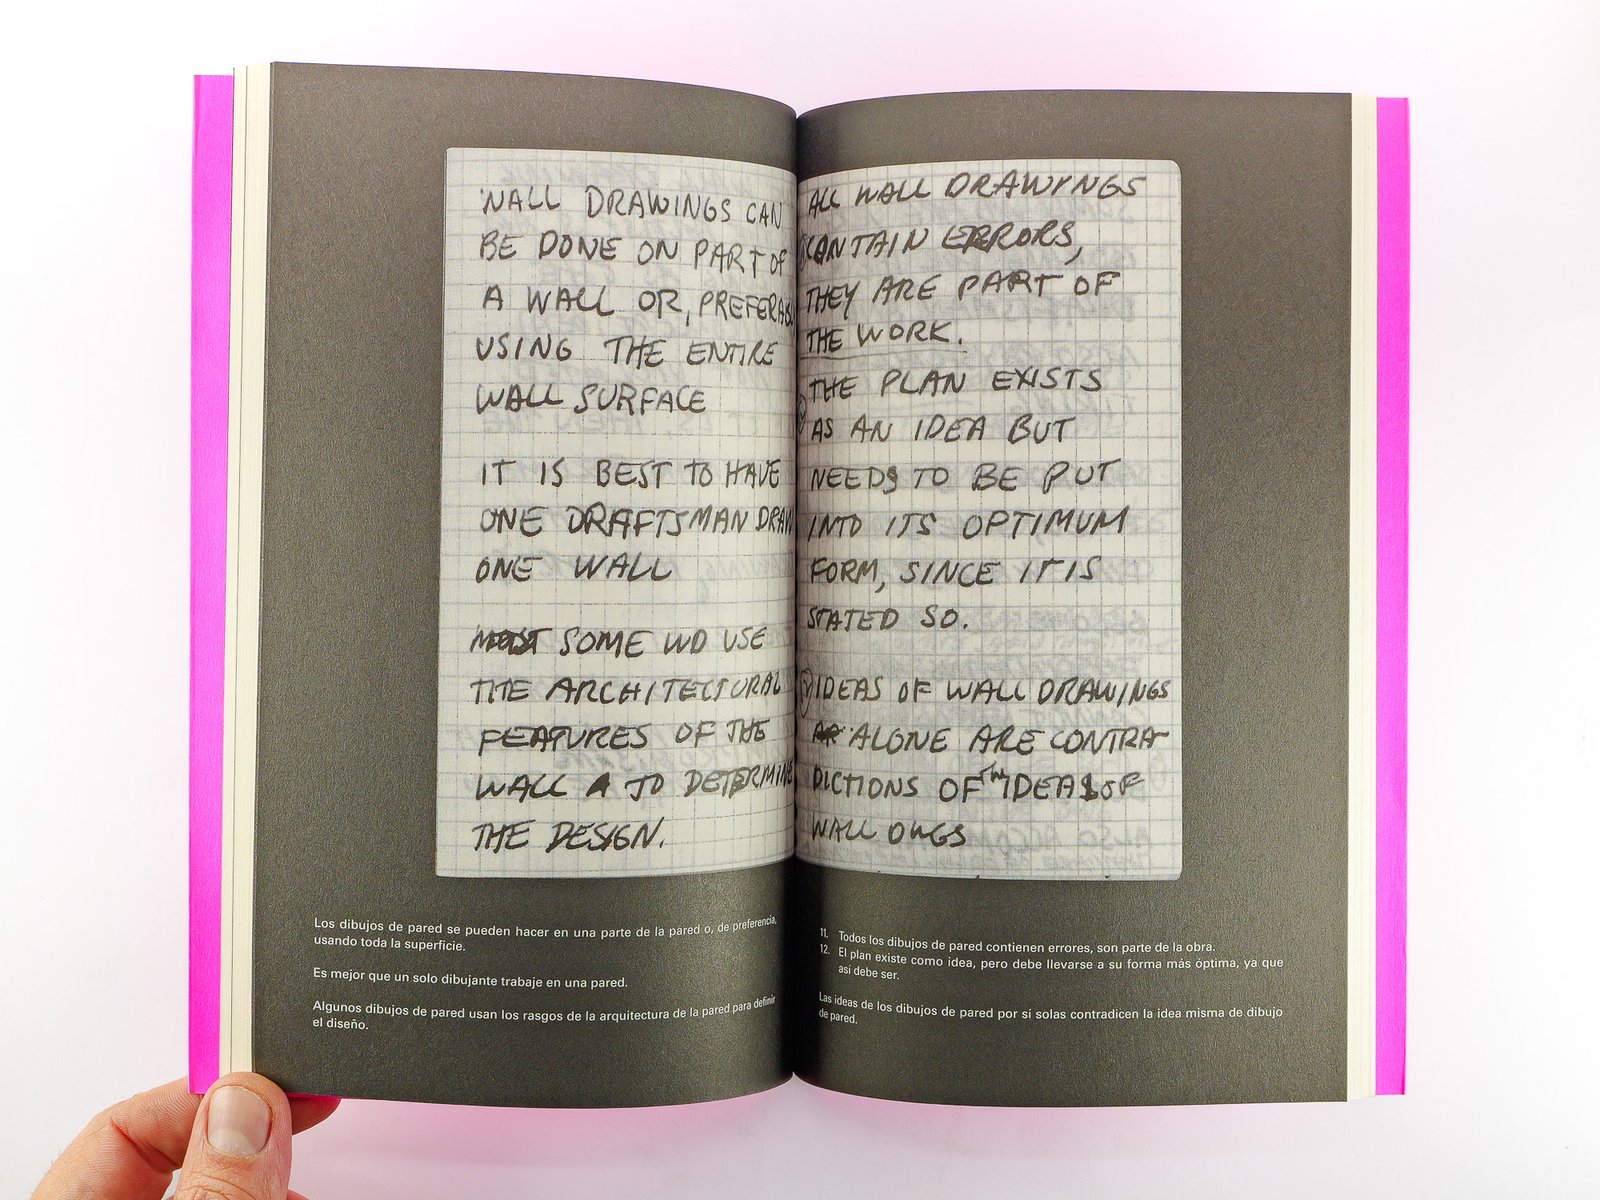 WALL DRAWINGS CAN
BE DONE ON PART OF
A WALL OR, PREFERABL
USING THE ENTIRE
WALL SURFACE
IT IS BEST TO HAVE
ONE DRAFTSMAN DRAW
ONE WALL
MOST SOME WD USE
THE ARCHITECTURAL
FEATURES OF THE
WALL TO DETERMINE
THE DESIGN.
Los dibujos de pared se pueden hacer en una parte de la pared o, de preferencia,
usando toda la superficie.
Es mejor que un solo dibujante trabaje en una pared.
Algunos dibujos de pared usan los rasgos de la arquitectura de la pared para definir
el diseño.
ALL WALL DRAWINGS
CONTAIN ERRORS,
THEY ARE PART OF
THE WORK.
THE PLAN EXISTS
AS AN IDEA BUT
NEEDS TO BE PUT
INTO ITS OPTIMUM
FORM, SINCE IT IS
STATED SO.
IDEAS OF WALL DRAWINGS
AR ALONE ARE CONTRA-
DICTIONS OF THE IDEAS OF
WALL DWGS
11. Todos los dibujos de pared contienen errores, son parte de la obra.
12. El plan existe como idea, pero debe llevarse a su forma más óptima, ya que
así debe ser.
Las ideas de los dibujos de pared por sí solas contradicen la idea misma de dibujo
de pared.